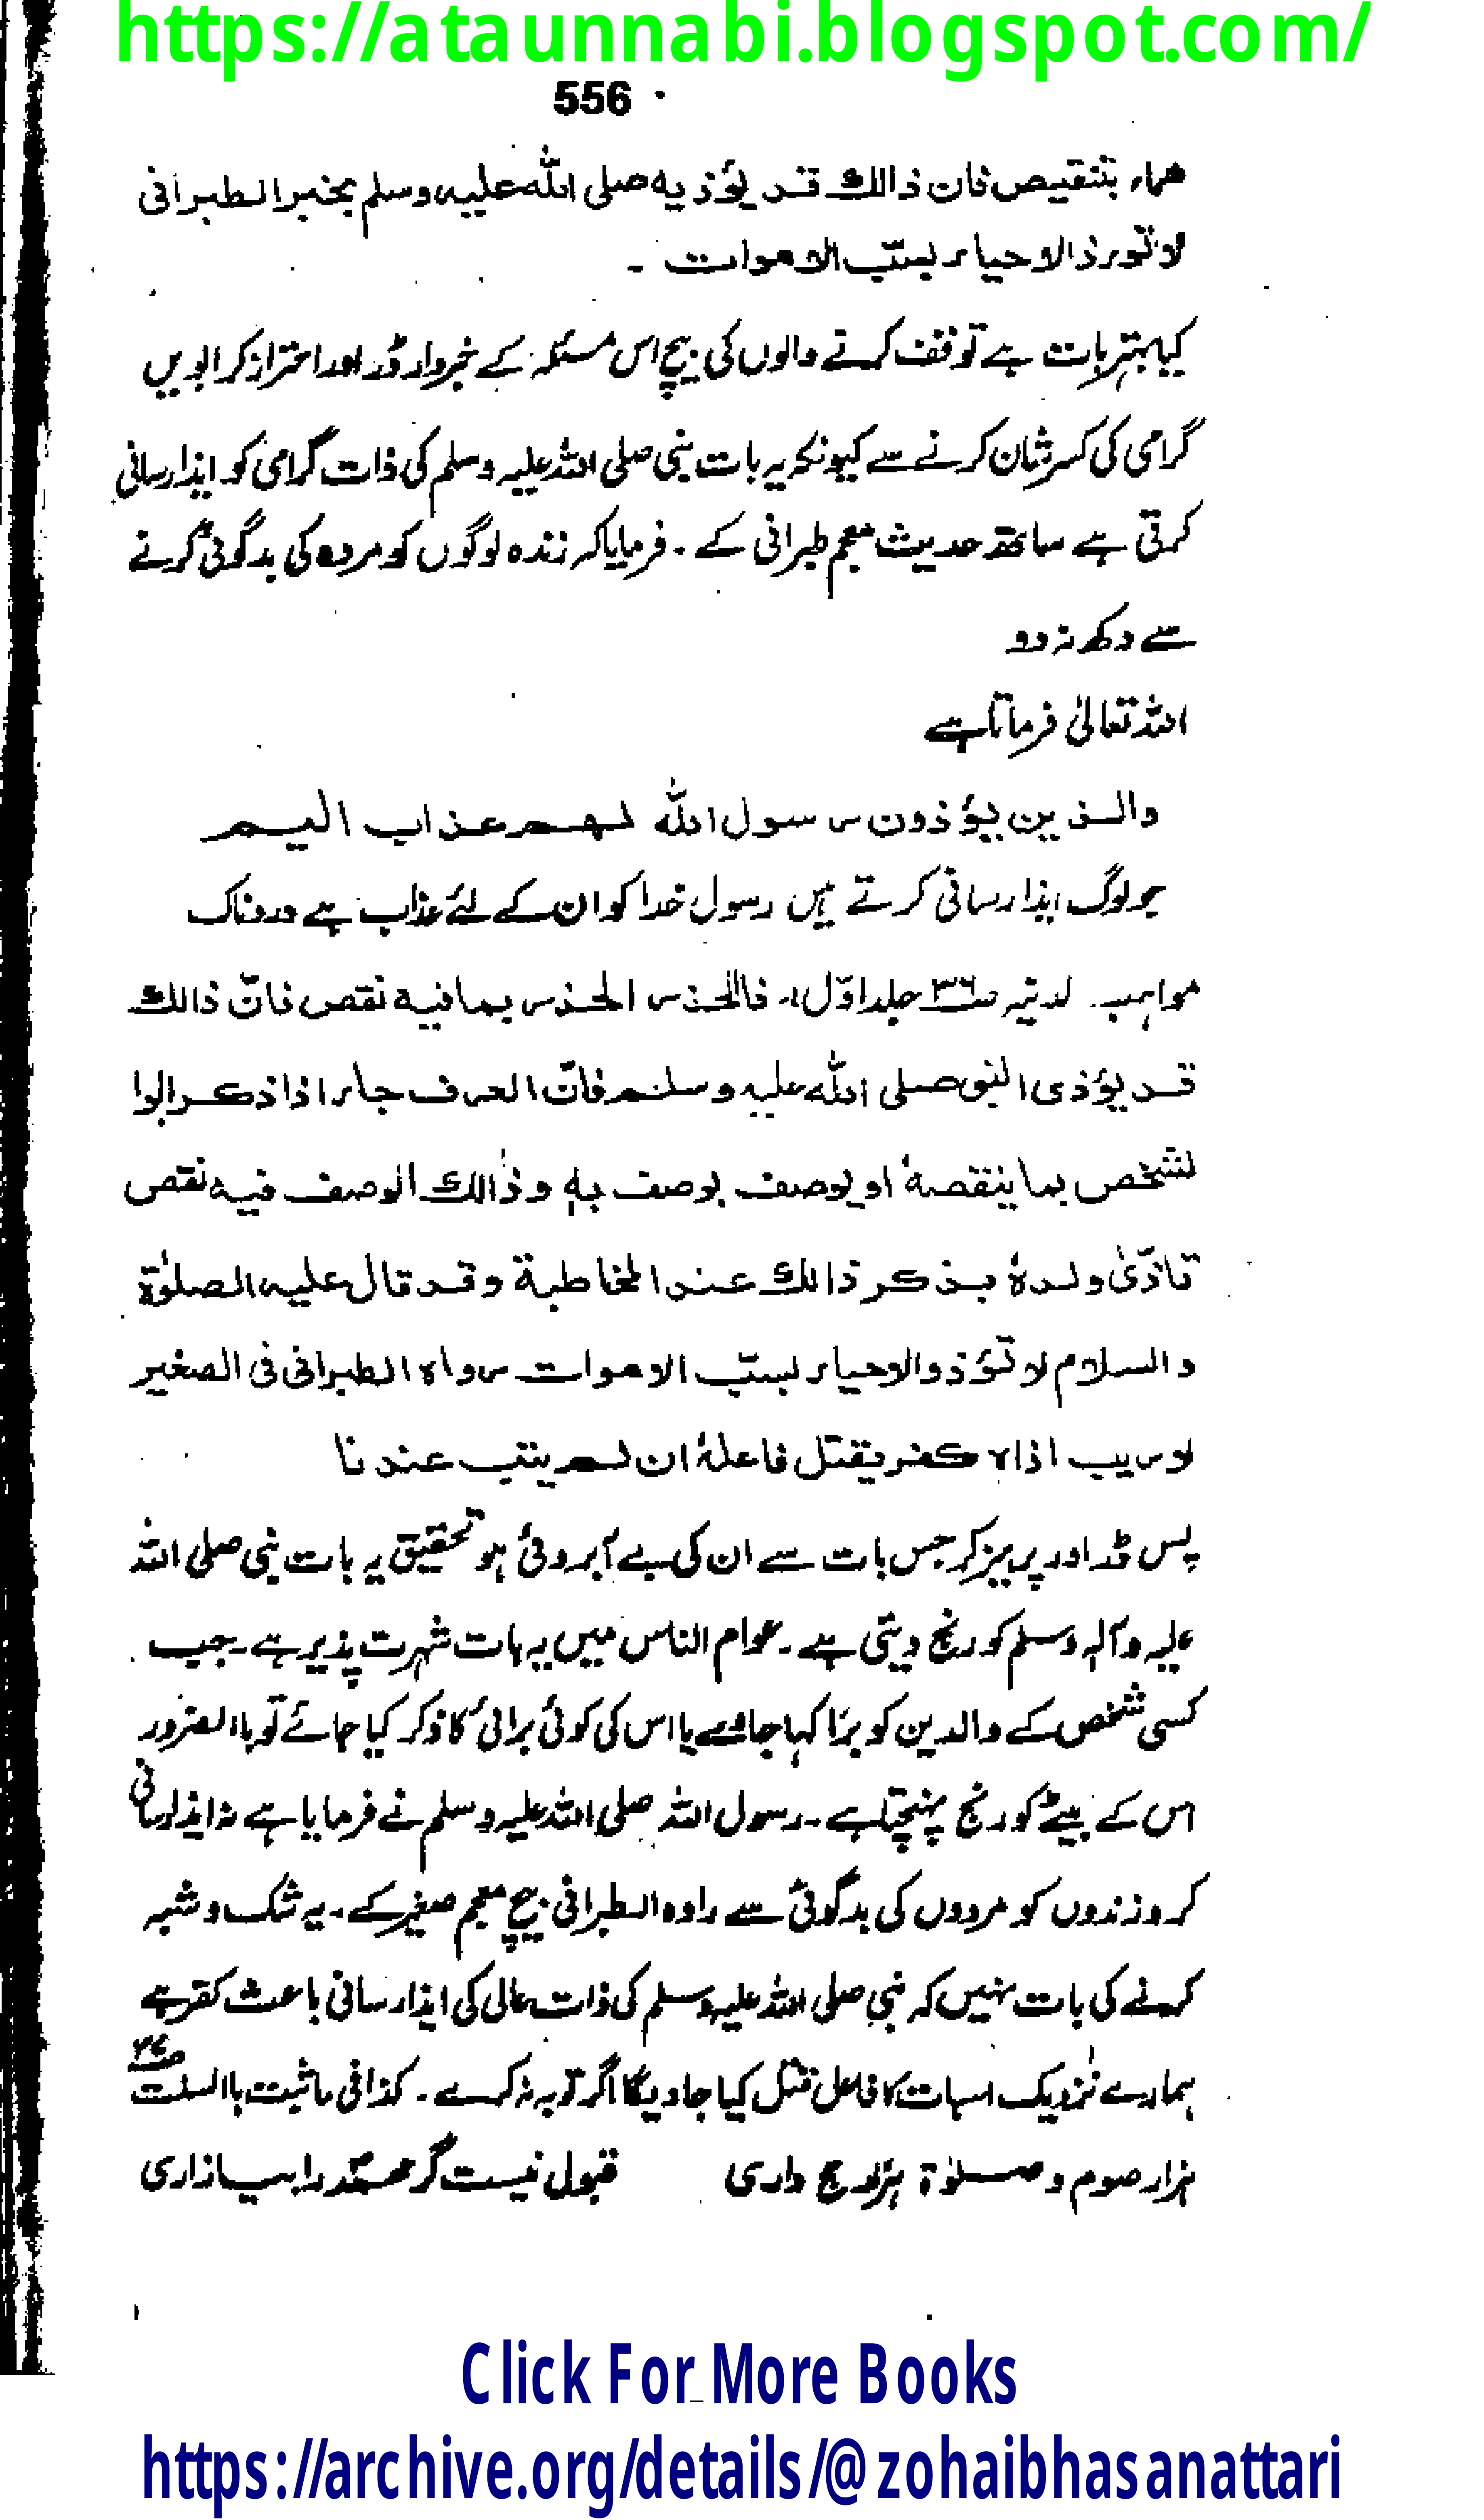 https://ataunnabi.blogspot.com/
556
ھماء بتنقیص فان ذالك قد یؤذیه صلی اللہ علیہ وسلم بخبر الطبرانی
لا تورذ الاحیاء بسبّ الاموات ۔
کیا بہتر بات ہے توقف کرنے والوں کی بیچ اس مسئلہ کے خبردار ڈر اور احتراز کر ابویں
گرامی کی کسر شان کرنے سے کیونکہ یہ بات نبی صلی اللہ علیہ وسلم کی ذات گرامی کو ایذا رسانی
کرتی ہے ساتھ حدیث معجم طبرانی کے ۔ فرمایا کہ زندہ لوگوں کو مردہ کی بدگوئی کرنے
سے دکھ نہ دو
اللہ تعالیٰ فرماتا ہے
والذین یؤذون رسول اللہ لھم عذاب الیم
جو لوگ ایذا رسانی کرتے ہیں رسول خدا کو ان کے لئے عذاب ہے دردناک
مواہب لدنیہ ص۳۶ جلد اوّل ۔ فالحذر الحذر بما فیہ نقص فانّ ذالك
قد یؤذی النبی صلی اللہ علیہ وسلم فانّ العرف جاء اذا ذکر ابوا
لشخص بما ینقصہٗ او یوصف بوصف بہٖ و ذٰالك الوصف فیہ نقص
تاذّیٰ ولدہٗ بذکر ذالك عند المخاطبة وقد قال علیہ الصلوٰة
والسلام لا تؤذوالاحیاء بسبّ الاموات رواہ الطبرانی فی الصغیر
لاریب اذاہ کفر یقتل فاعلہٗ ان لم یتب عندنا
پس ڈر اور پرہیز کر جس بات سے ان کی بے آبروئی ہو تحقیق یہ بات نبی صلی اللہ
علیہ وآلہ وسلم کو رنج دیتی ہے ۔ عوام الناس میں یہ بات شہرت پذیر ہے ۔ جب
کسی شخص کے والدین کو برُا کہا جاوے یا اس کی کوئی برائی کا ذکر کیا جائے تو باالضرور
اس کے بیٹے کو رنج پہنچتا ہے ۔ رسول اللہ صلی اللہ علیہ وسلم نے فرمایا ہے نہ ایذا رسانی
کرو زندوں کو مردوں کی بدگوئی سے راوہ الطبرانی بیچ معجم صغیر کے ۔ یہ شک و شبہ
کرنے کی بات نہیں کہ نبی صلی اللہ علیہ وسلم کی ذات عالی کی ایذا رسانی باعث کفر ہے
ہمارے نزدیک اسبات کا فاعل قتل کیا جاویگا اگر توبہ نہ کرے ۔ کذا فی ماثبت باالسنت
ہزار صوم و صلوٰة ہزار حج داری قبول نیست گر محمّد را بیازاری
Click For More Books
https://archive.org/details/@zohaibhasanattari